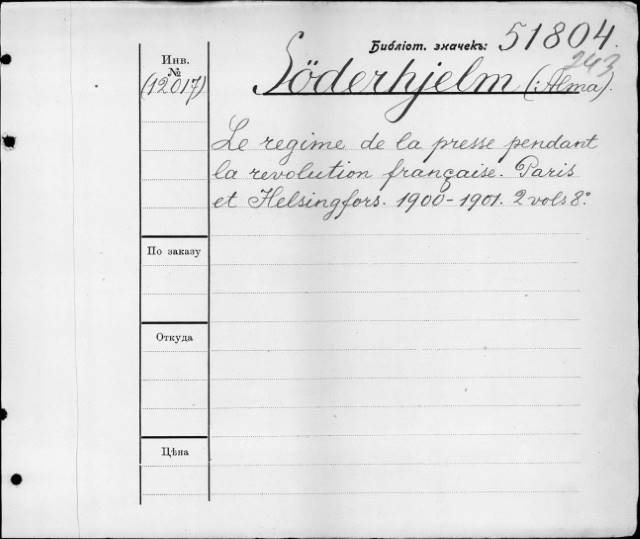 Библіот. значекъ: 51804.
243
Инв.
№
(12017)
Söderhjelm (:Alma).
Le regime de la presse pendant
la revolution française. Paris
et Helsingfors. 1900-1901. 2 vols 8°
По заказу
Откуда
Цѣна